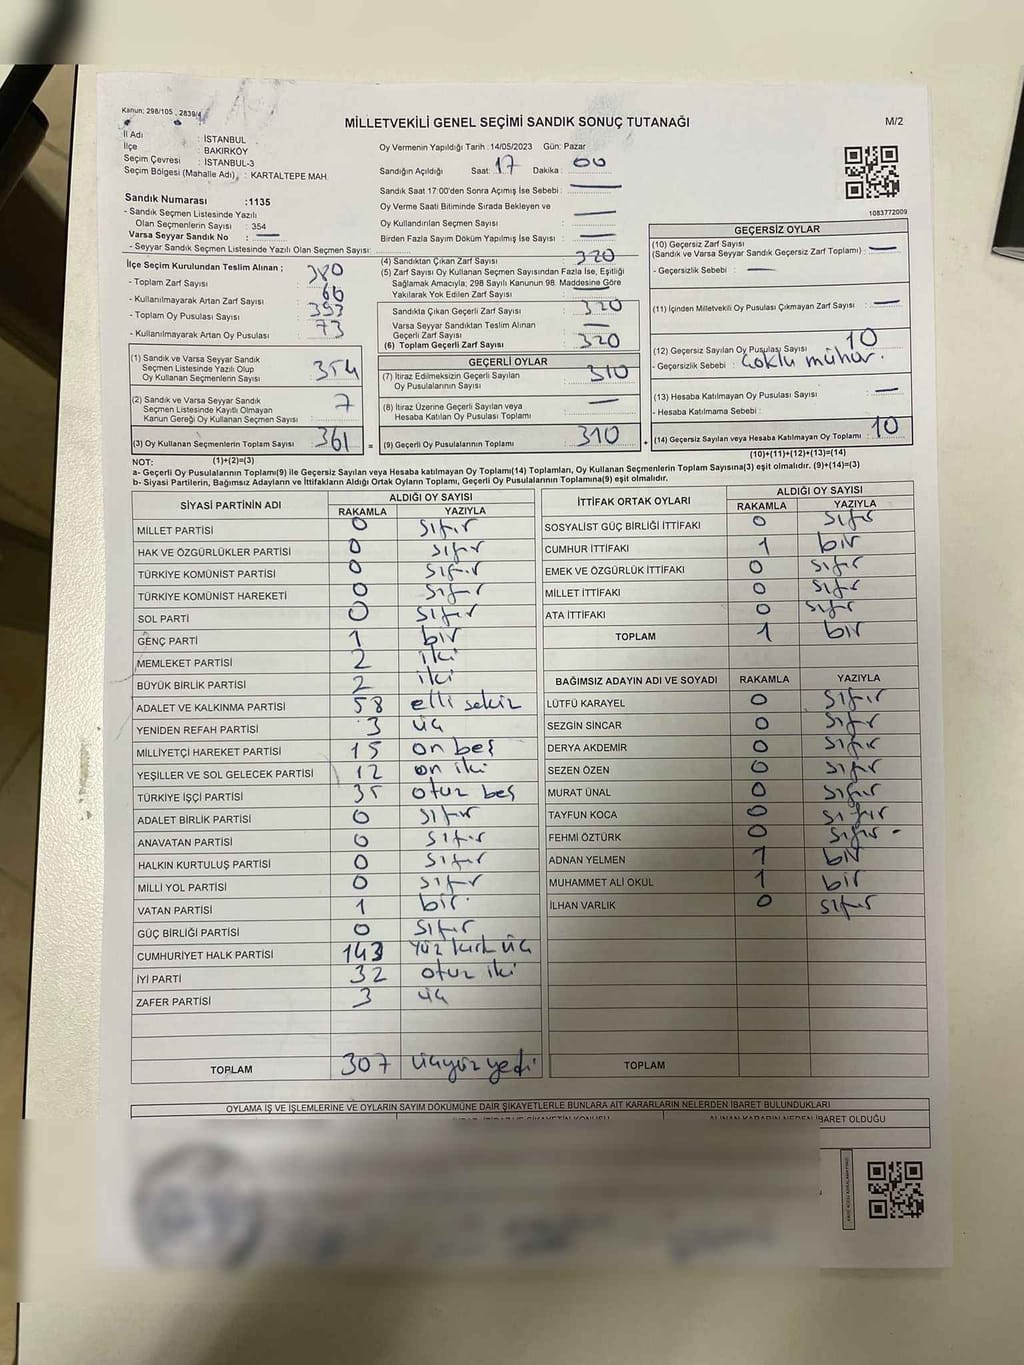 Kanun: 298/105 , 2839/4
MİLLETVEKİLİ GENEL SEÇİMİ SANDIK SONUÇ TUTANAĞI
M/2
İl Adı : İSTANBUL
İlçe : BAKIRKÖY
Seçim Çevresi : İSTANBUL-3
Seçim Bölgesi (Mahalle Adı) : KARTALTEPE MAH.
Oy Vermenin Yapıldığı Tarih : 14/05/2023 Gün: Pazar
Sandığın Açıldığı Saat: 17 Dakika : 00
Sandık Saat 17:00'den Sonra Açımış İse Sebebi : —
Oy Verme Saati Bitiminde Sırada Bekleyen ve
Oy Kullandırılan Seçmen Sayısı : —
Birden Fazla Sayım Döküm Yapılmış İse Sayısı : —
1083772009
Sandık Numarası :1135
- Sandık Seçmen Listesinde Yazılı
Olan Seçmenlerin Sayısı : 354
Varsa Seyyar Sandık No : —
- Seyyar Sandık Seçmen Listesinde Yazılı Olan Seçmen Sayısı:
İlçe Seçim Kurulundan Teslim Alınan ;
- Toplam Zarf Sayısı : 380
- Kullanılmayarak Artan Zarf Sayısı : 66
- Toplam Oy Pusulası Sayısı : 393
- Kullanılmayarak Artan Oy Pusulası : 73
(1) Sandık ve Varsa Seyyar Sandık
Seçmen Listesinde Yazılı Olup
Oy Kullanan Seçmenlerin Sayısı : 354
(2) Sandık ve Varsa Seyyar Sandık
Seçmen Listesinde Kayıtlı Olmayan
Kanun Gereği Oy Kullanan Seçmen Sayısı : 7
(3) Oy Kullanan Seçmenlerin Toplam Sayısı : 361
(1)+(2)=(3)
(4) Sandıktan Çıkan Zarf Sayısı : 320
(5) Zarf Sayısı Oy Kullanan Seçmen Sayısından Fazla İse, Eşitliği
Sağlamak Amacıyla; 298 Sayılı Kanunun 98. Maddesine Göre
Yakılarak Yok Edilen Zarf Sayısı : —
Sandıkta Çıkan Geçerli Zarf Sayısı : 320
Varsa Seyyar Sandıktan Teslim Alınan
Geçerli Zarf Sayısı : —
(6) Toplam Geçerli Zarf Sayısı : 320
GEÇERLİ OYLAR
(7) İtiraz Edilmeksizin Geçerli Sayılan
Oy Pusulalarının Sayısı : 310
(8) İtiraz Üzerine Geçerli Sayılan veya
Hesaba Katılan Oy Pusulası Toplamı : —
= (9) Geçerli Oy Pusulalarının Toplamı : 310
GEÇERSİZ OYLAR
(10) Geçersiz Zarf Sayısı
(Sandık ve Varsa Seyyar Sandık Geçersiz Zarf Toplamı) : —
- Geçersizlik Sebebi : —
(11) İçinden Milletvekili Oy Pusulası Çıkmayan Zarf Sayısı : —
(12) Geçersiz Sayılan Oy Pusulası Sayısı : 10
- Geçersizlik Sebebi : Çoklu mühür.
(13) Hesaba Katılmayan Oy Pusulası Sayısı : —
- Hesaba Katılmama Sebebi :
+ (14) Geçersiz Sayılan veya Hesaba Katılmayan Oy Toplamı : 10
(10)+(11)+(12)+(13)=(14)
NOT:
a- Geçerli Oy Pusulalarının Toplamı(9) ile Geçersiz Sayılan veya Hesaba katılmayan Oy Toplamı(14) Toplamları, Oy Kullanan Seçmenlerin Toplam Sayısına(3) eşit olmalıdır. (9)+(14)=(3)
b- Siyasi Partilerin, Bağımsız Adayların ve İttifakların Aldığı Ortak Oyların Toplamı, Geçerli Oy Pusulalarının Toplamına(9) eşit olmalıdır.
SİYASİ PARTİNİN ADI ALDIĞI OY SAYISI
RAKAMLA YAZIYLA
MİLLET PARTİSİ 0 sıfır
HAK VE ÖZGÜRLÜKLER PARTİSİ 0 sıfır
TÜRKİYE KOMÜNİST PARTİSİ 0 sıfır
TÜRKİYE KOMÜNİST HAREKETİ 0 sıfır
SOL PARTİ 0 sıfır
GENÇ PARTİ 1 bir
MEMLEKET PARTİSİ 2 iki
BÜYÜK BİRLİK PARTİSİ 2 iki
ADALET VE KALKINMA PARTİSİ 58 elli sekiz
YENİDEN REFAH PARTİSİ 3 üç
MİLLİYETÇİ HAREKET PARTİSİ 15 on beş
YEŞİLLER VE SOL GELECEK PARTİSİ 12 on iki
TÜRKİYE İŞÇİ PARTİSİ 35 otuz beş
ADALET BİRLİK PARTİSİ 0 sıfır
ANAVATAN PARTİSİ 0 sıfır
HALKIN KURTULUŞ PARTİSİ 0 sıfır
MİLLİ YOL PARTİSİ 0 sıfır
VATAN PARTİSİ 1 bir
GÜÇ BİRLİĞİ PARTİSİ 0 sıfır
CUMHURİYET HALK PARTİSİ 143 Yüz kırk üç
İYİ PARTİ 32 otuz iki
ZAFER PARTİSİ 3 üç
TOPLAM 307 üçyüz yedi
İTTİFAK ORTAK OYLARI ALDIĞI OY SAYISI
RAKAMLA YAZIYLA
SOSYALİST GÜÇ BİRLİĞİ İTTİFAKI 0 sıfır
CUMHUR İTTİFAKI 1 bir
EMEK VE ÖZGÜRLÜK İTTİFAKI 0 sıfır
MİLLET İTTİFAKI 0 sıfır
ATA İTTİFAKI 0 sıfır
TOPLAM 1 bir
BAĞIMSIZ ADAYIN ADI VE SOYADI RAKAMLA YAZIYLA
LÜTFÜ KARAYEL 0 sıfır
SEZGİN SİNCAR 0 sıfır
DERYA AKDEMİR 0 sıfır
SEZEN ÖZEN 0 sıfır
MURAT ÜNAL 0 sıfır
TAYFUN KOCA 0 sıfır
FEHMİ ÖZTÜRK 0 sıfır
ADNAN YELMEN 1 bir
MUHAMMET ALİ OKUL 1 bir
İLHAN VARLIK 0 sıfır
TOPLAM
OYLAMA İŞ VE İŞLEMLERİNE VE OYLARIN SAYIM DÖKÜMÜNE DAİR ŞİKAYETLERLE BUNLARA AİT KARARLARIN NELERDEN İBARET BULUNDUKLARI
ALINAN KARARIN NEDEN İBARET OLDUĞU